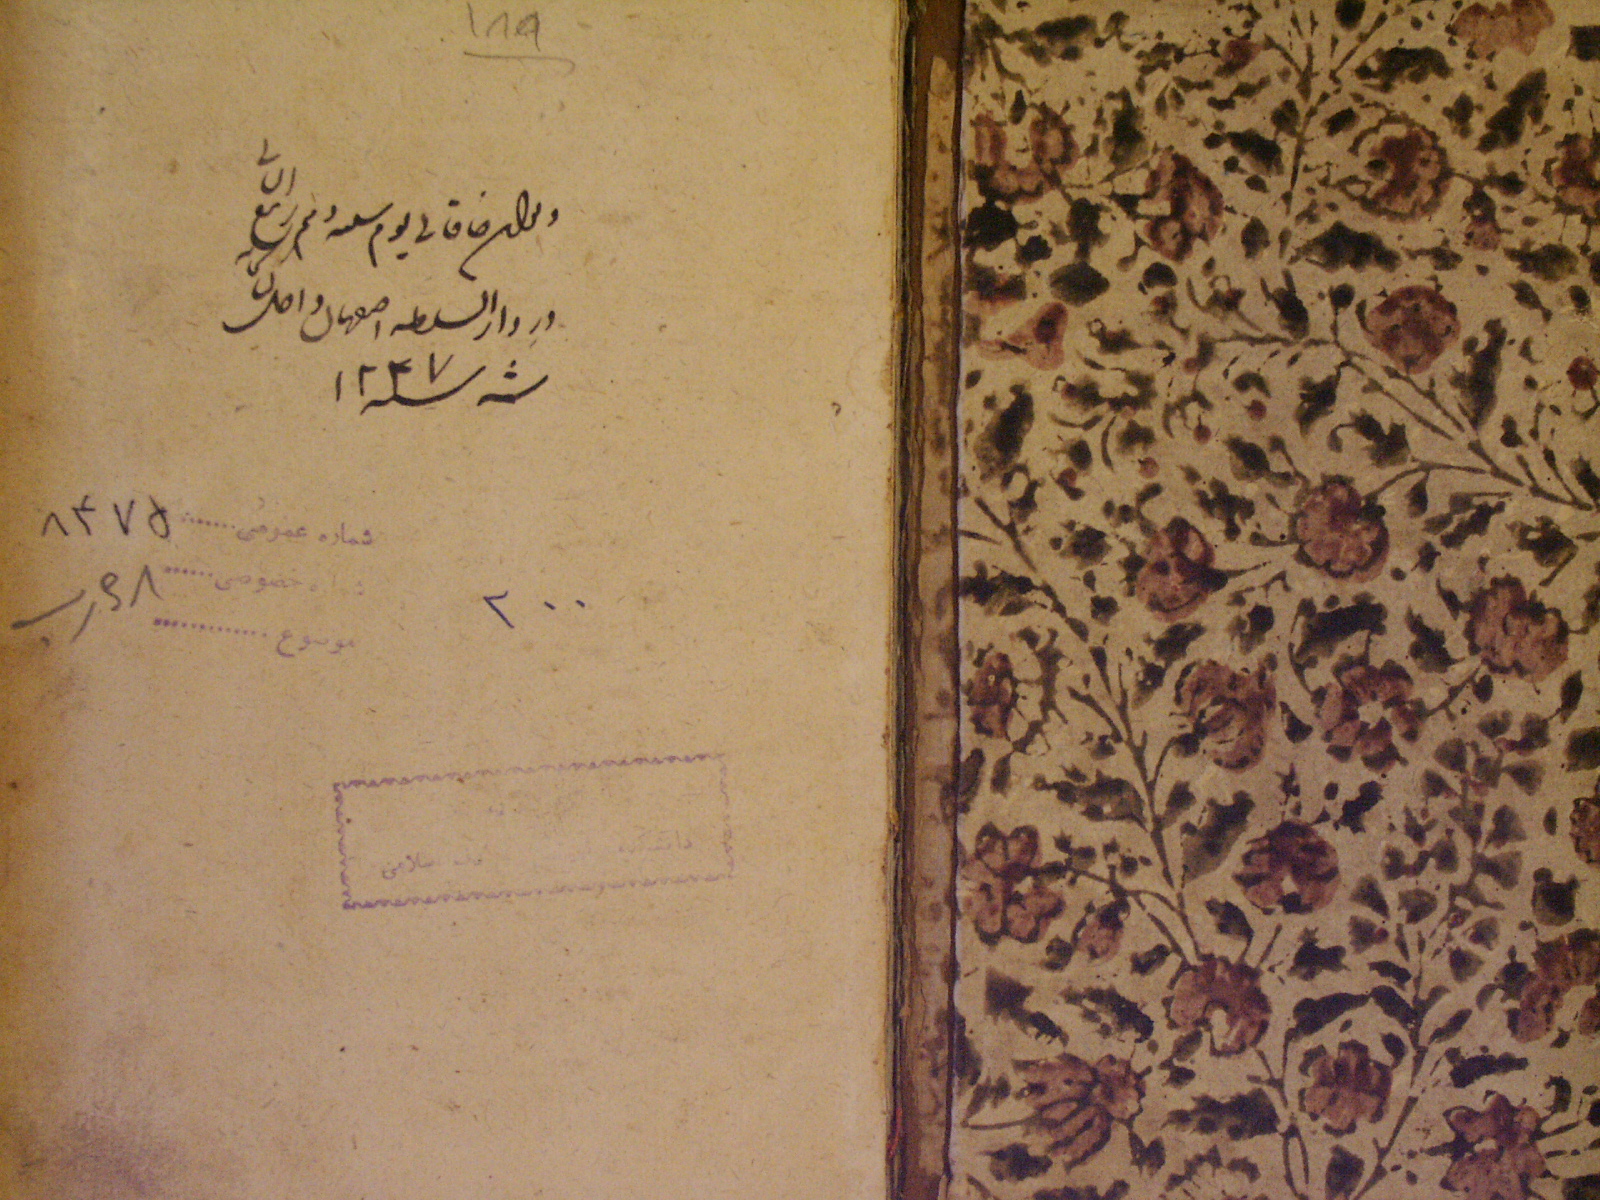 ۱۸۹
دیوان خاقانی یوم سه شنبه دویم ربیع الثانی
در دار السلطنه اصفهان داخل
شد سنه ۱۲۴۷
شماره عمومی ۸۴۷۵
خصوصی ۶۸
موضوع
۲۰۰
اسلامی